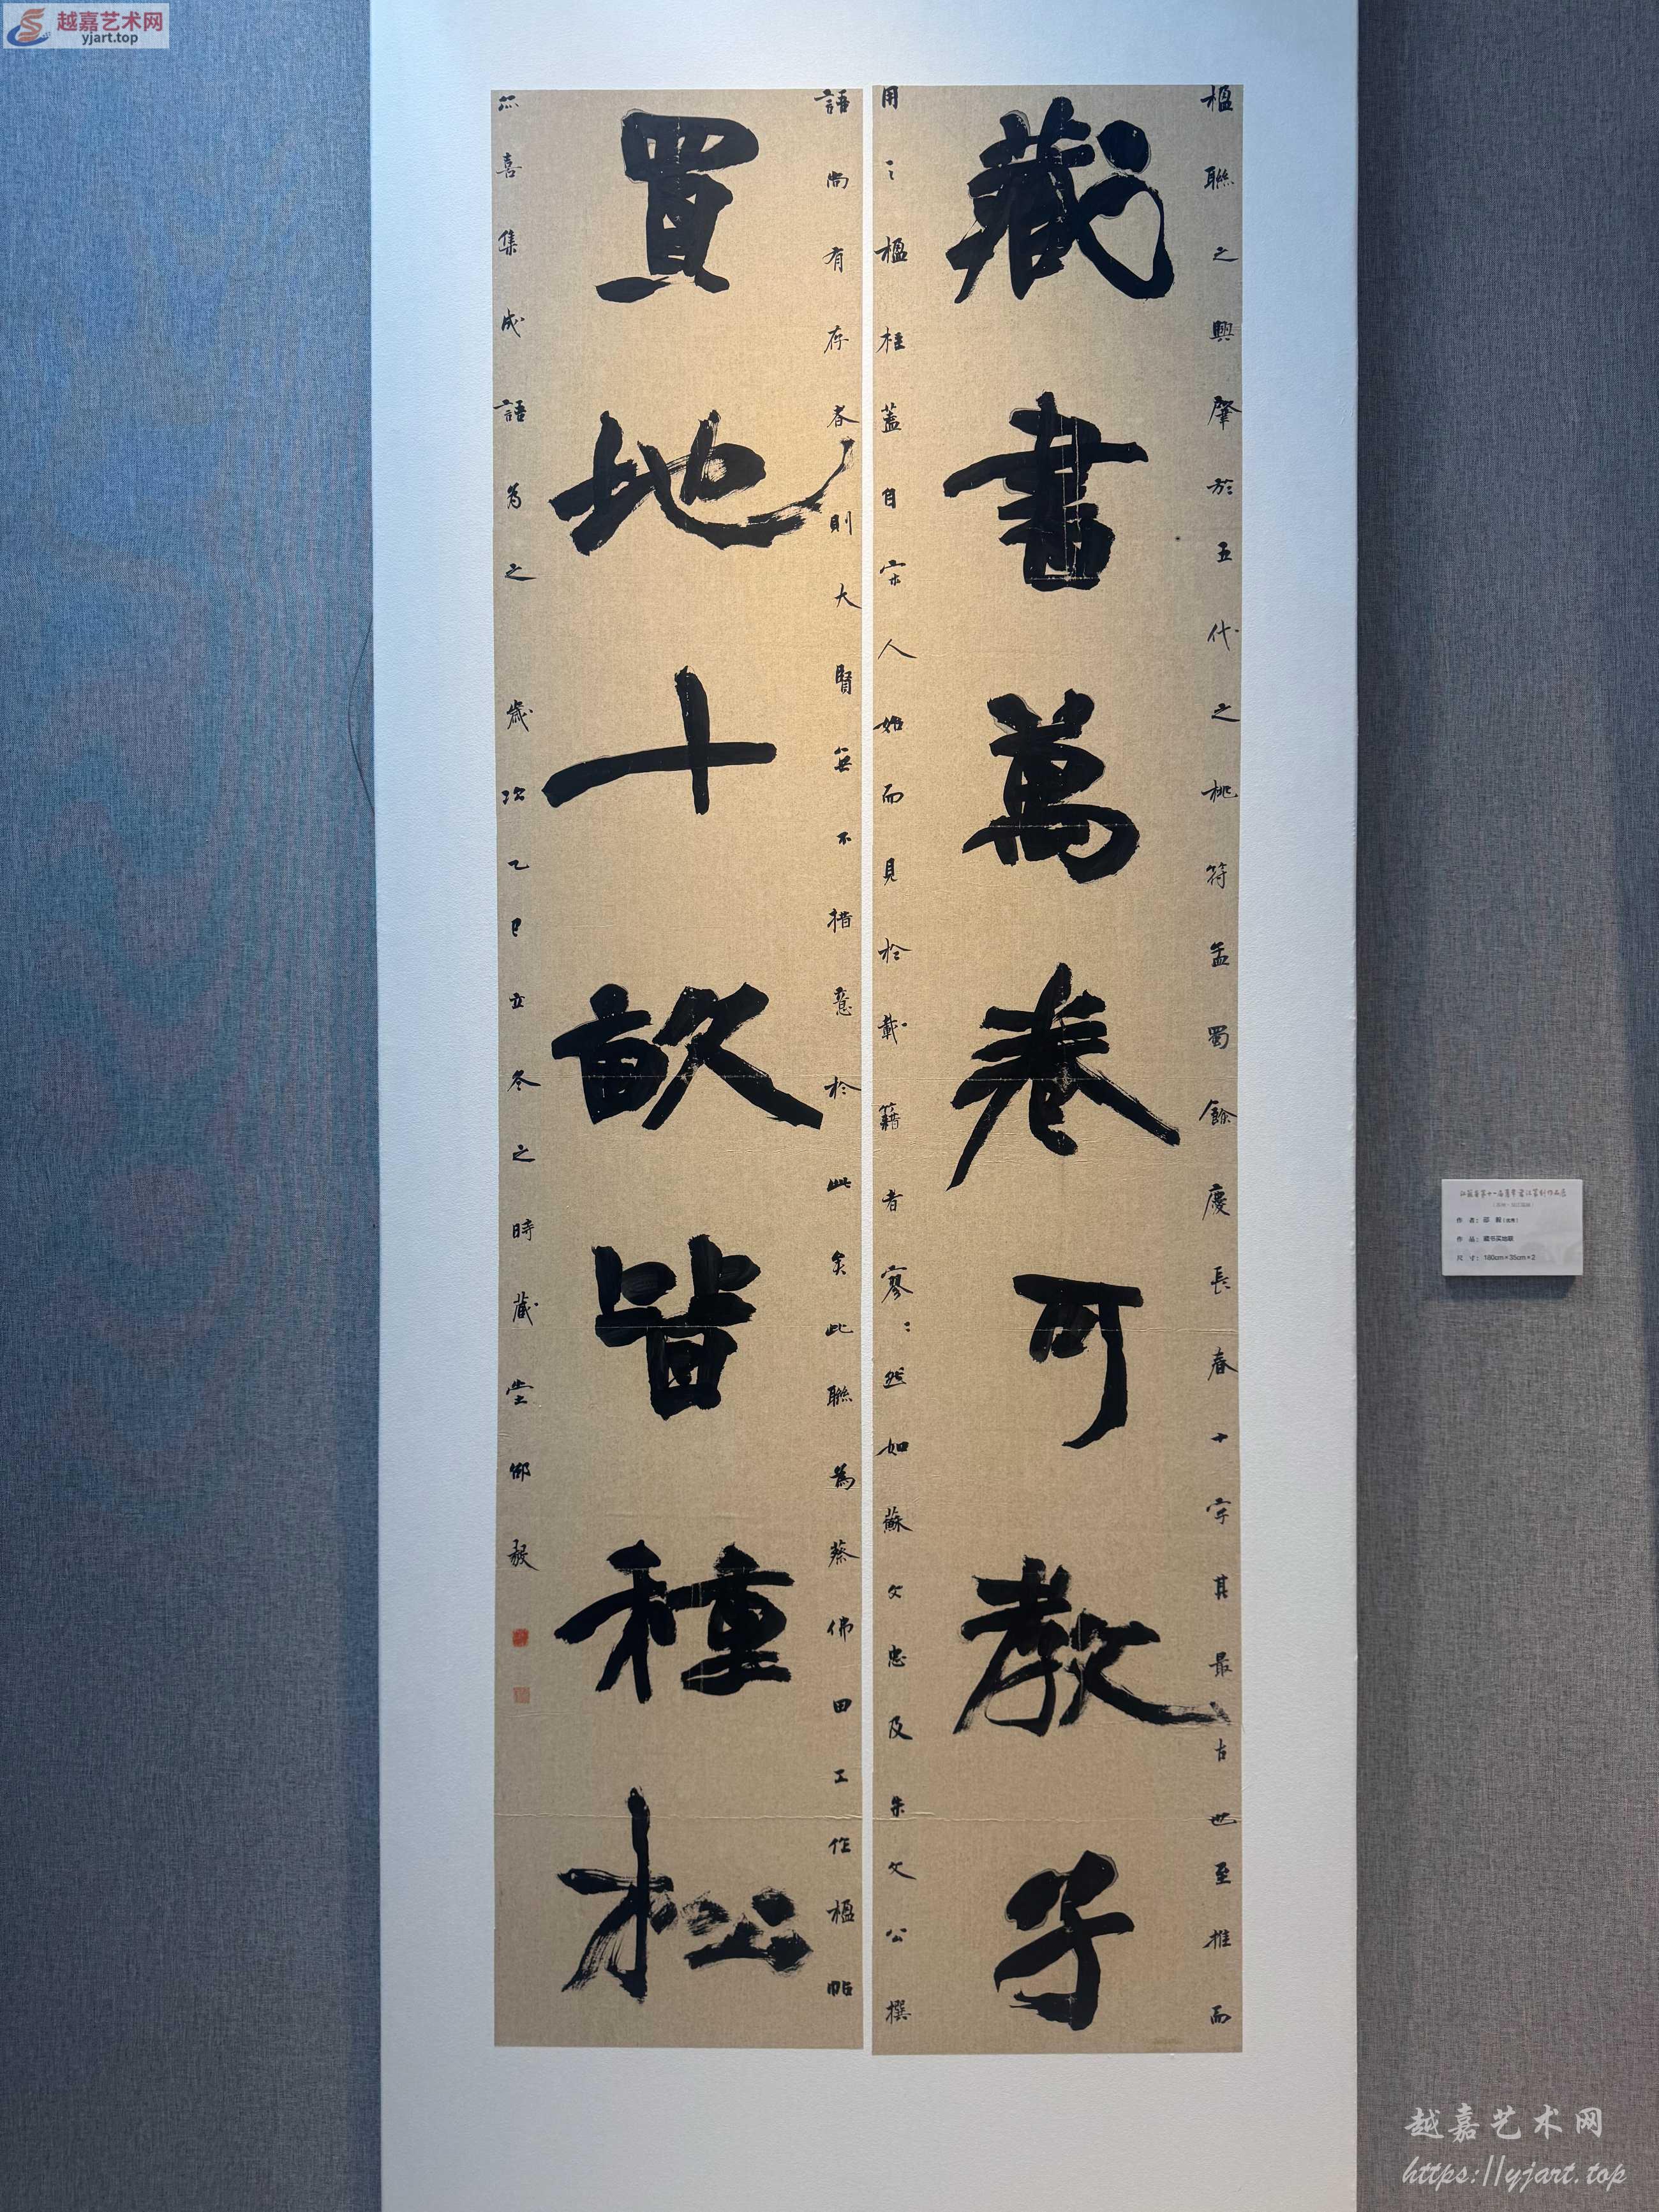 越嘉艺术网
yjart.top
楹聯之興肇於五代之桃符孟蜀餘慶長春十字其最古也至推而
藏書萬卷可教子
用之楹柱蓋自宋人始而見於載籍者寥:然如蘇文忠及朱文公撰
語尚有存者則大賢無不措意於此矣此聯為蔡佛田工作楹帖
買地十畝皆種松
喜集成語為之歲次乙巳立冬之時藏堂鄉毅
作 者:邵 毅
作 品:藏书买地联
尺 寸:180cm×35cm×2
越嘉艺术网
https://yjart.top